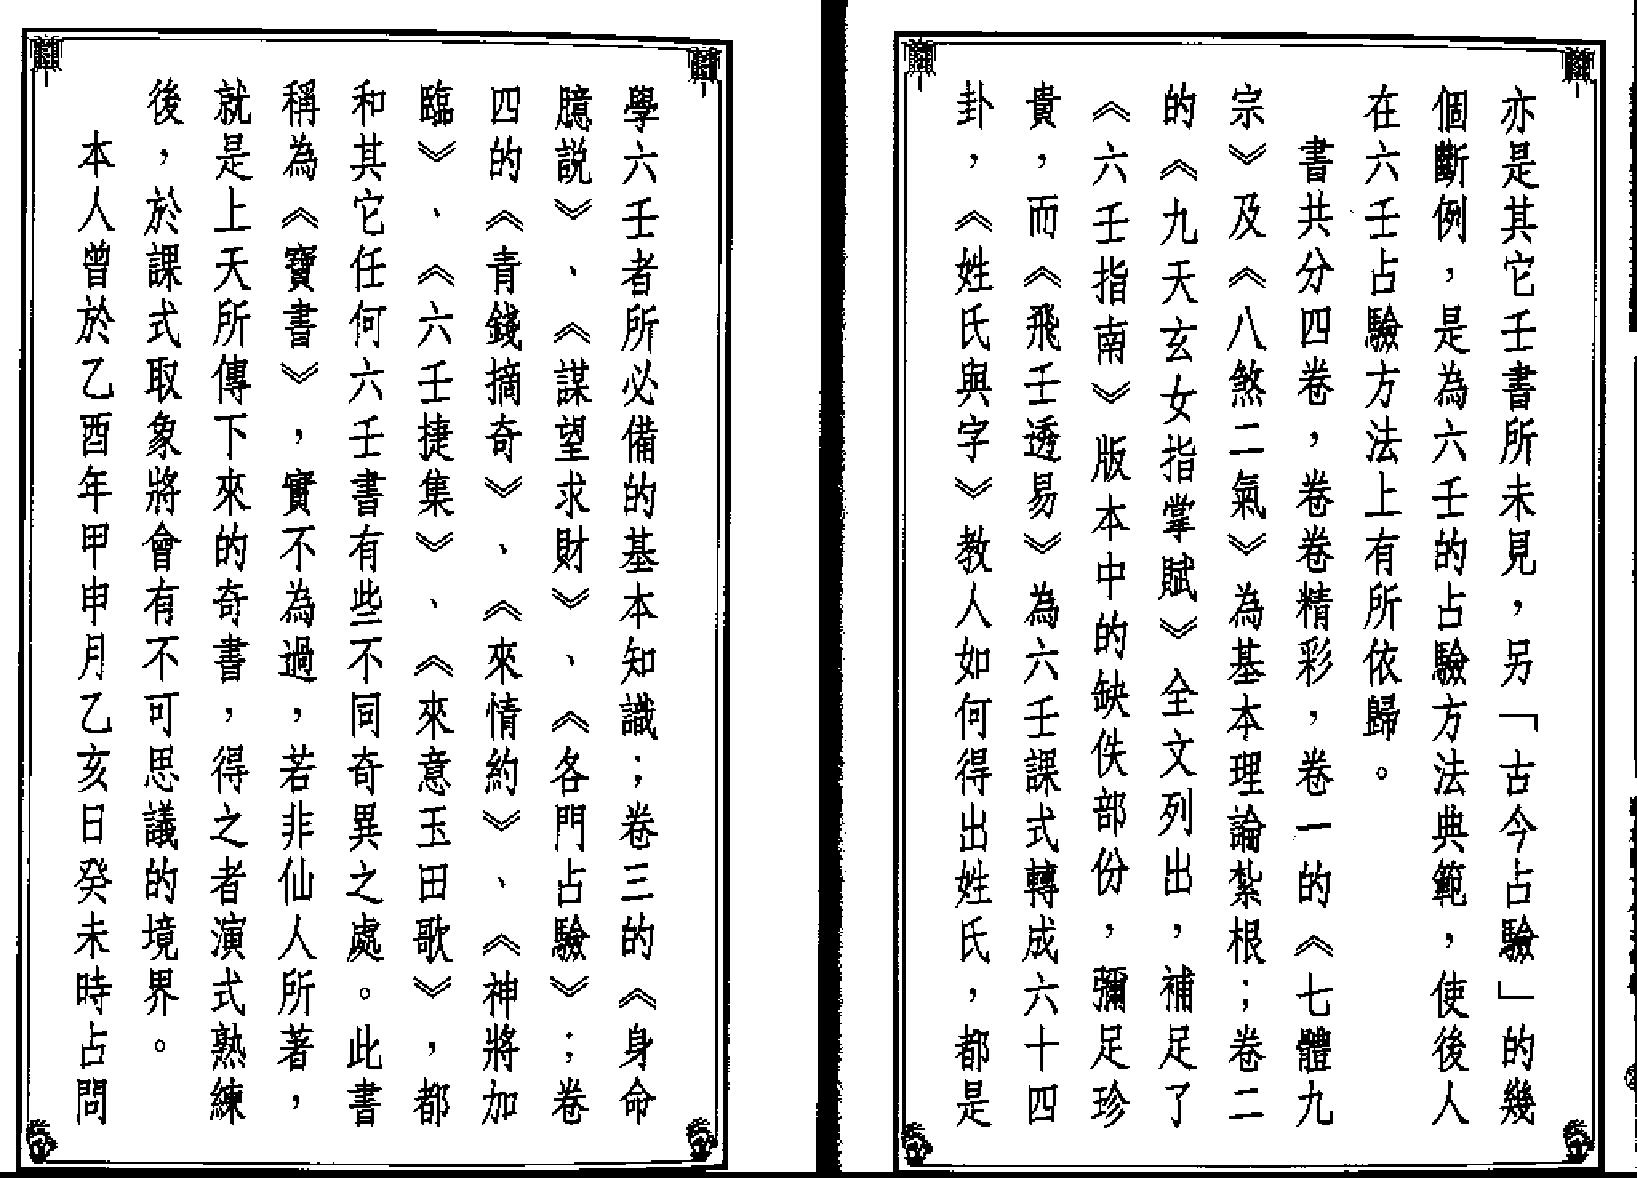 亦是其它壬書所未見，另「古今占驗」的幾
個斷例，是為六壬的占驗方法典範，使後人
在六壬占驗方法上有所依歸。
書共分四卷，卷卷精彩，卷一的《七體九
宗》及《八煞二氣》為基本理論紮根；卷二
的《九天玄女指掌賦》全文列出，補足了
《六壬指南》版本中的缺佚部份，彌足珍
貴，而《飛壬透易》為六壬課式轉成六十四
卦，《姓氏與字》教人如何得出姓氏，都是
學六壬者所必備的基本知識；卷三的《身命
臆説》、《謀望求財》、《各門占驗》；卷
四的《青錢摘奇》、《來情約》、《神將加
臨》、《六壬捷集》、《來意玉田歌》，都
和其它任何六壬書有些不同奇異之處。此書
稱為《寶書》，實不為過，若非仙人所著，
就是上天所傳下來的奇書，得之者演式熟練
後，於課式取象將會有不可思議的境界。
本人曾於乙酉年甲申月乙亥日癸未時占問